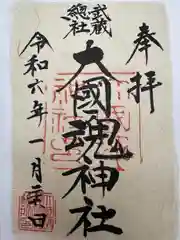 奉拝
武蔵
總社
大國魂神社
令和六年一月二日